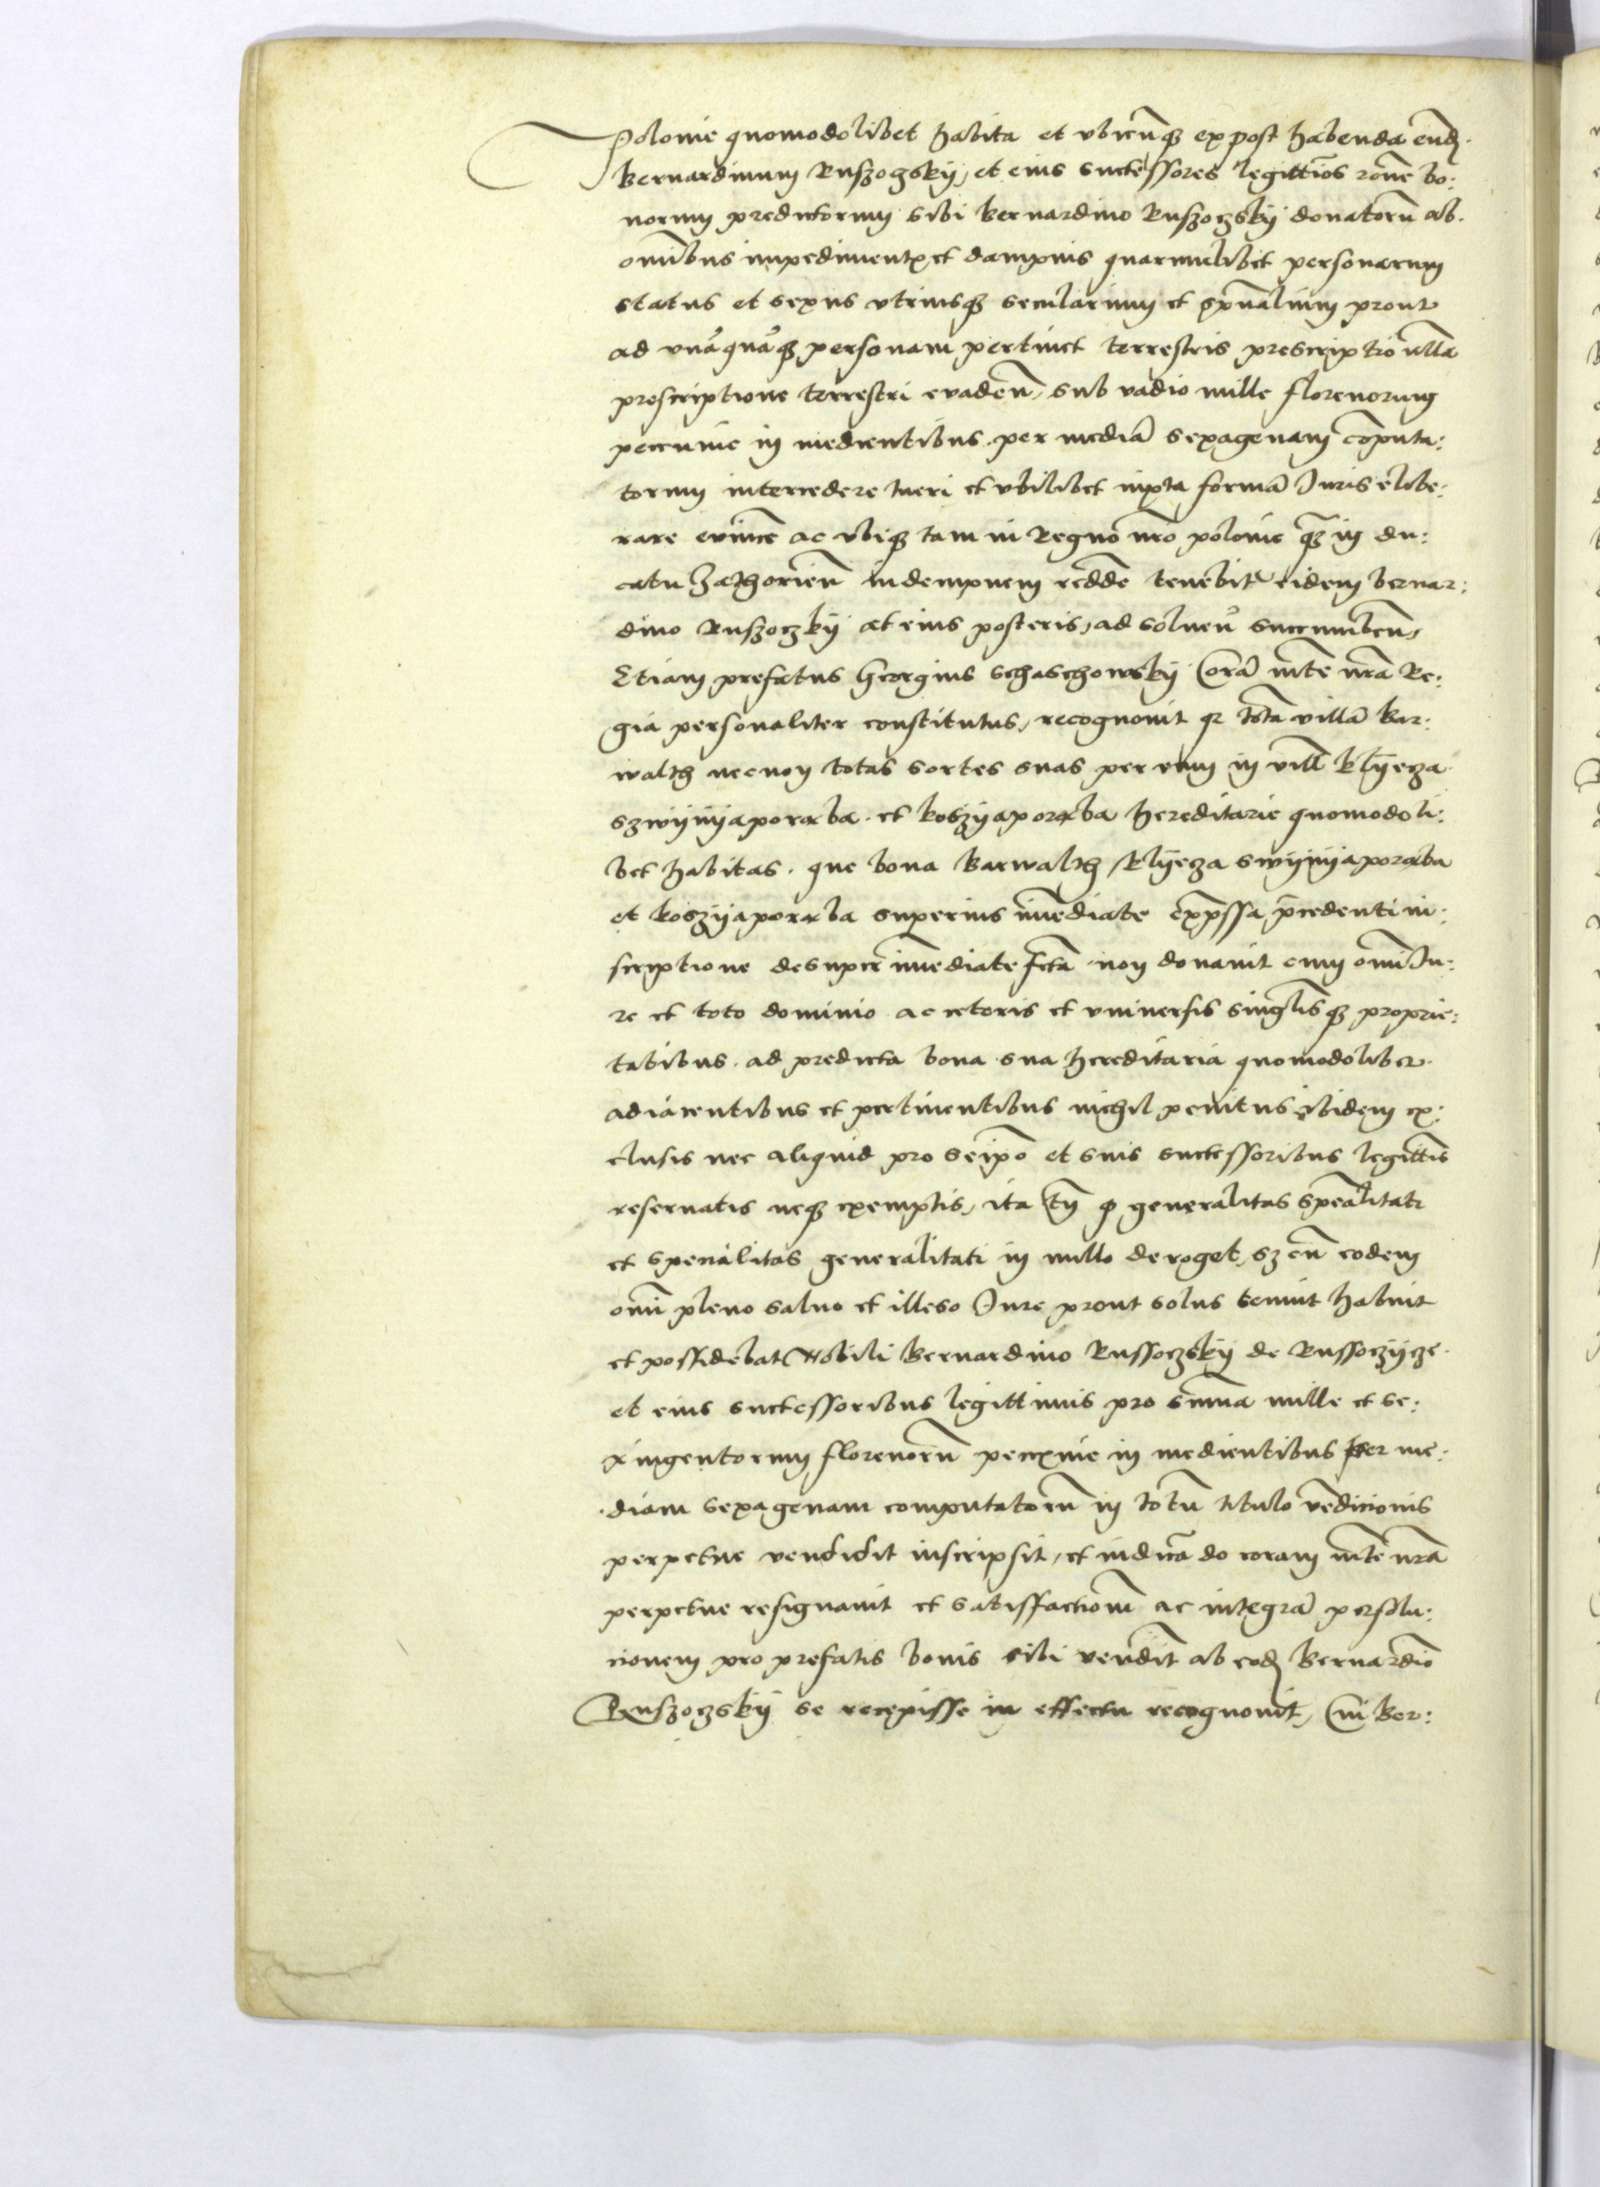 Polonie quomodolibet habita et vbicūq; ex post habenda eund
Bernardinum Ruszoczskÿ, et eius successores legittīos rōne bo:
norum predictorum sibi Bernardino Ruszoczskÿ donatorū ab
om̄ibus impediment; et dampnis quarumlibet personarum
status et sexus vtriusq; secularium et sp̄ualium prout
ad vnāquāq; personam pertinet terrestris prescriptio ulla
proscriptione terrestri evadeñ, sub vadio mille florenorum
peccunie in medientibus per mediā sexagenam cōputa:
torum intercedere tueri et vbilibet iuxta formā Juris elibe:
rare evinc̄e ac vbiq; tam in Regno nr̄o polonie q̄; in du:
catu Zathorieñ indempnem redd̄e tenebitur eidem bernar:
dino Ruszoczkÿ et eius posteris, ad solueñ succumbeñ,
Etiam prefatus Georgius Schaschowskÿ Corā mt̄e nr̄a Re:
gia personaliter constitutus, recognouit qr totā villā Bar:
walth necnon totas sortes suas per eum in vill̄ Klÿecza
szwÿnÿaporaba et koszÿaporaba hereditarie quomodoli:
bet habitas, que bona Barwalth Klÿecza swÿnÿaporaba
et koszÿaporaba superius im̄ediate exp̄ssa p̄cedenti in:
scriptione desuper im̄ediate fc̄ta non donauit cum om̄i Ju:
re et toto dominio ac ceteris et vniuersis singl̄isq; proprie:
tatibus ad predicta bona sua hereditaria quomodolibet
adiacentibus et pertinentibus nichil penitus ibidem ex:
clusis nec aliquid pro seip̄o et suis successoribus legitt̄is
reseruatis neq; exemptis, ita tñ q generalitas sp̄ealitati
et specialitas generalitati in nullo deroget, sz cū eodem
om̄i pleno saluo et illeso Jure prout solus tenuit habuit
et possidebat Nobili Bernardino Russoczskÿ de Russoczÿcze
et eius successoribus legittimis pro sum̄a mille et se:
xingentorum florenorū peccunie in medientibus per me:
diam sexagenam computatorū in totū titulo vēdicionis
perpetue vendidit inscripsit, et in dicādo coram mt̄e nr̄a
perpetue resignauit et satisfactionem ac integrā persolu:
cionem pro prefatis bonis sibi vendit̄ ab eod Bernardīo
Ruszoczskÿ se recepisse in effectu recognouit, Cui Ber: